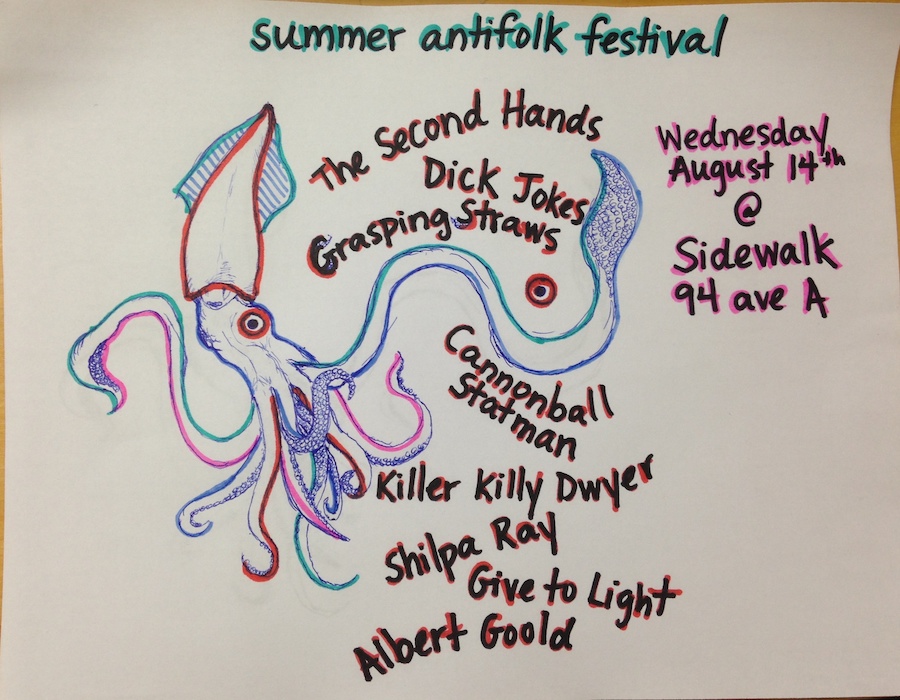 summer antifolk festival
The Second Hands
Dick Jokes
Grasping Straws
Cannonball
Statman
Killer Killy Dwyer
Shilpa Ray
Give to Light
Albert Goold
Wednesday
August 14th
@
Sidewalk
94 ave A